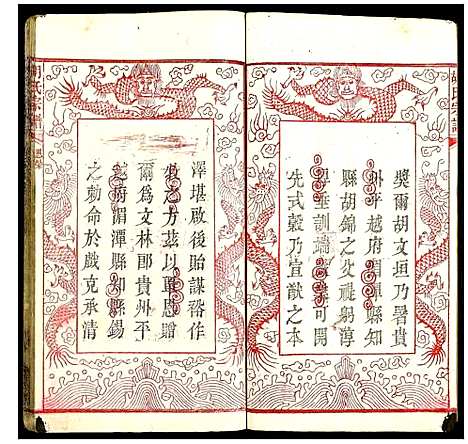 胡氏宗譜
奬爾胡文垣乃署貴
州平越府湄潭縣知
縣胡錦之父禔躬淳
厚垂訓端嚴可開
先式穀乃宣猷之本
澤堪啟後貽謀裕作
牧之方茲以覃恩贈
爾為文林郎貴州平
越府湄潭縣知縣錫
之勅命於戲克承清
胡氏宗譜